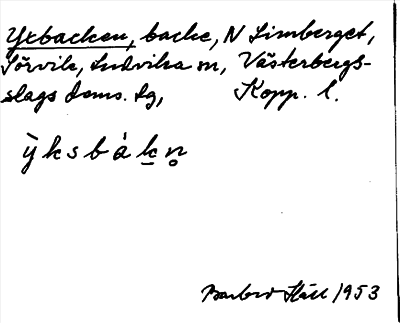 Yxbacken, backe, N Limberget,
Sörvik, Ludvika sn, Västerbergs-
slags doms. tg, Kopp. l.
ỳksbák̲n̥
Barbro Häll 1953